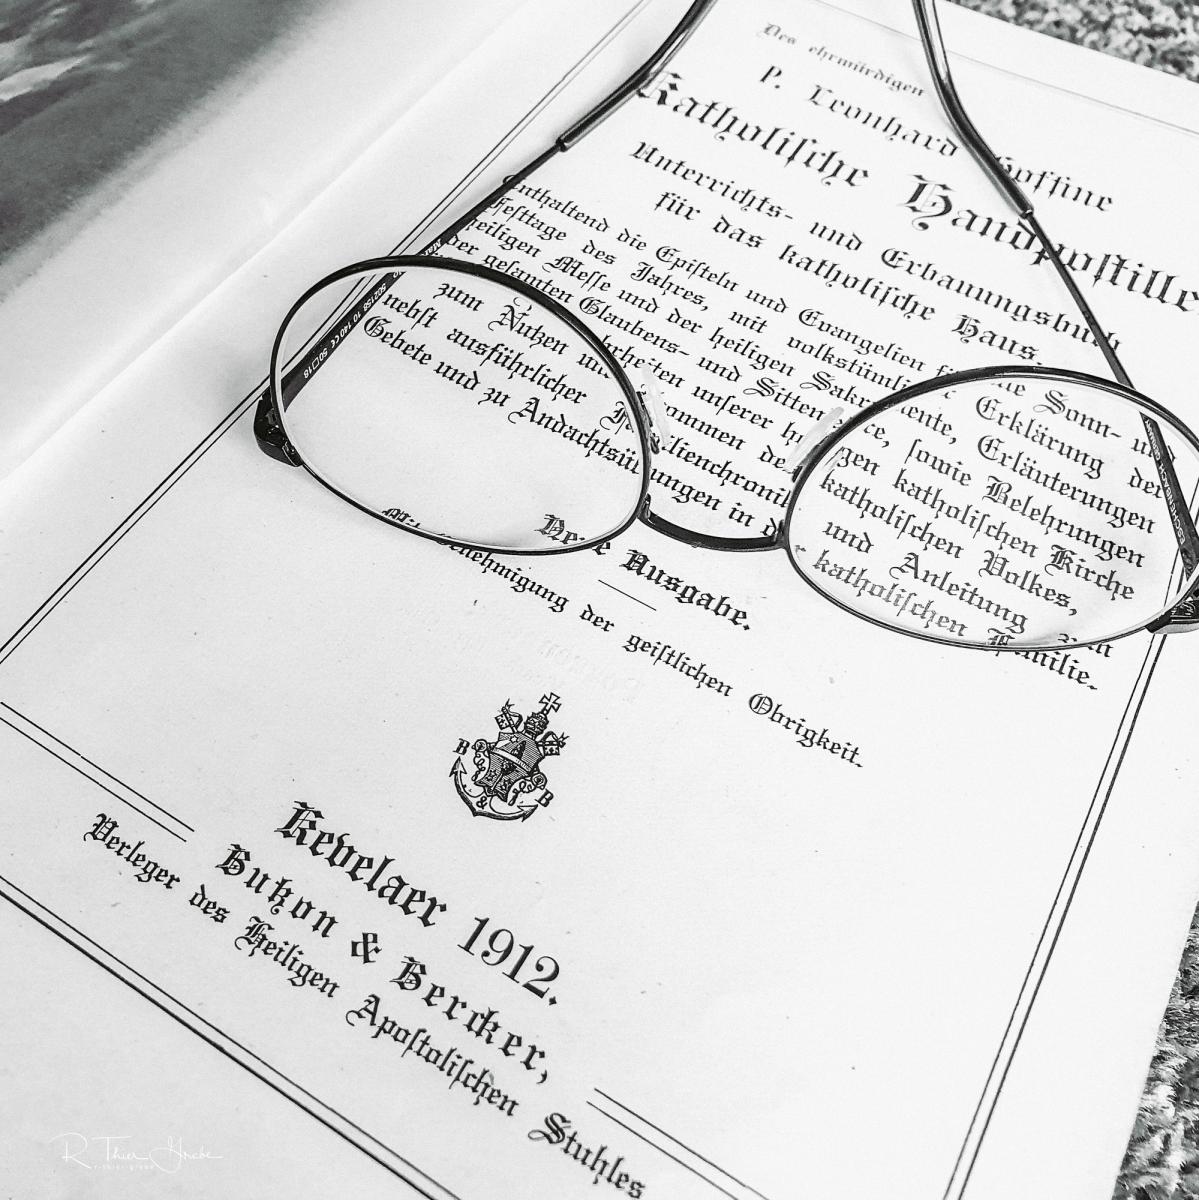 Des ehrwürdigen
P. Leonhard Goffine
Katholische Handpostille
Unterrichts- und Erbauungsbuch
für das katholische Haus
enthaltend die Episteln und Evangelien für die Sonn- und
Festtage des Jahres, mit volkstümlicher Erklärung der
heiligen Messe und der heiligen Sakramente, Erläuterungen
der gesamten Glaubens- und Sittenlehre, sowie Belehrungen
zum Nutzen und Frommen des katholischen Volkes,
nebst ausführlicher Familienchronik und Anleitung zum
Gebete und zu Andachtsübungen in der katholischen Familie.
Neue Ausgabe.
Mit Genehmigung der geistlichen Obrigkeit.
B & B
Kevelaer 1912.
Butzon & Bercker,
Verleger des Heiligen Apostolischen Stuhles